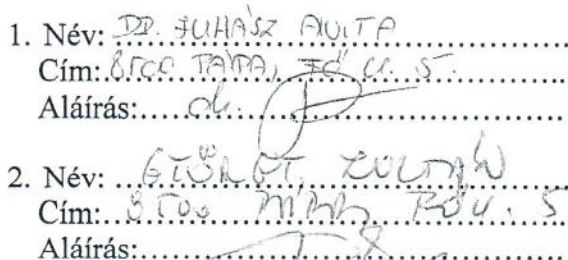 1. Név: DR. JUHÁSZ ANITA
Cím: 8500 PÁPA, Fő u. 5.
Aláírás: dr.
2. Név: ZOLTÁN
Cím: 8500 PÁPA, Fő u. 5
Aláírás: